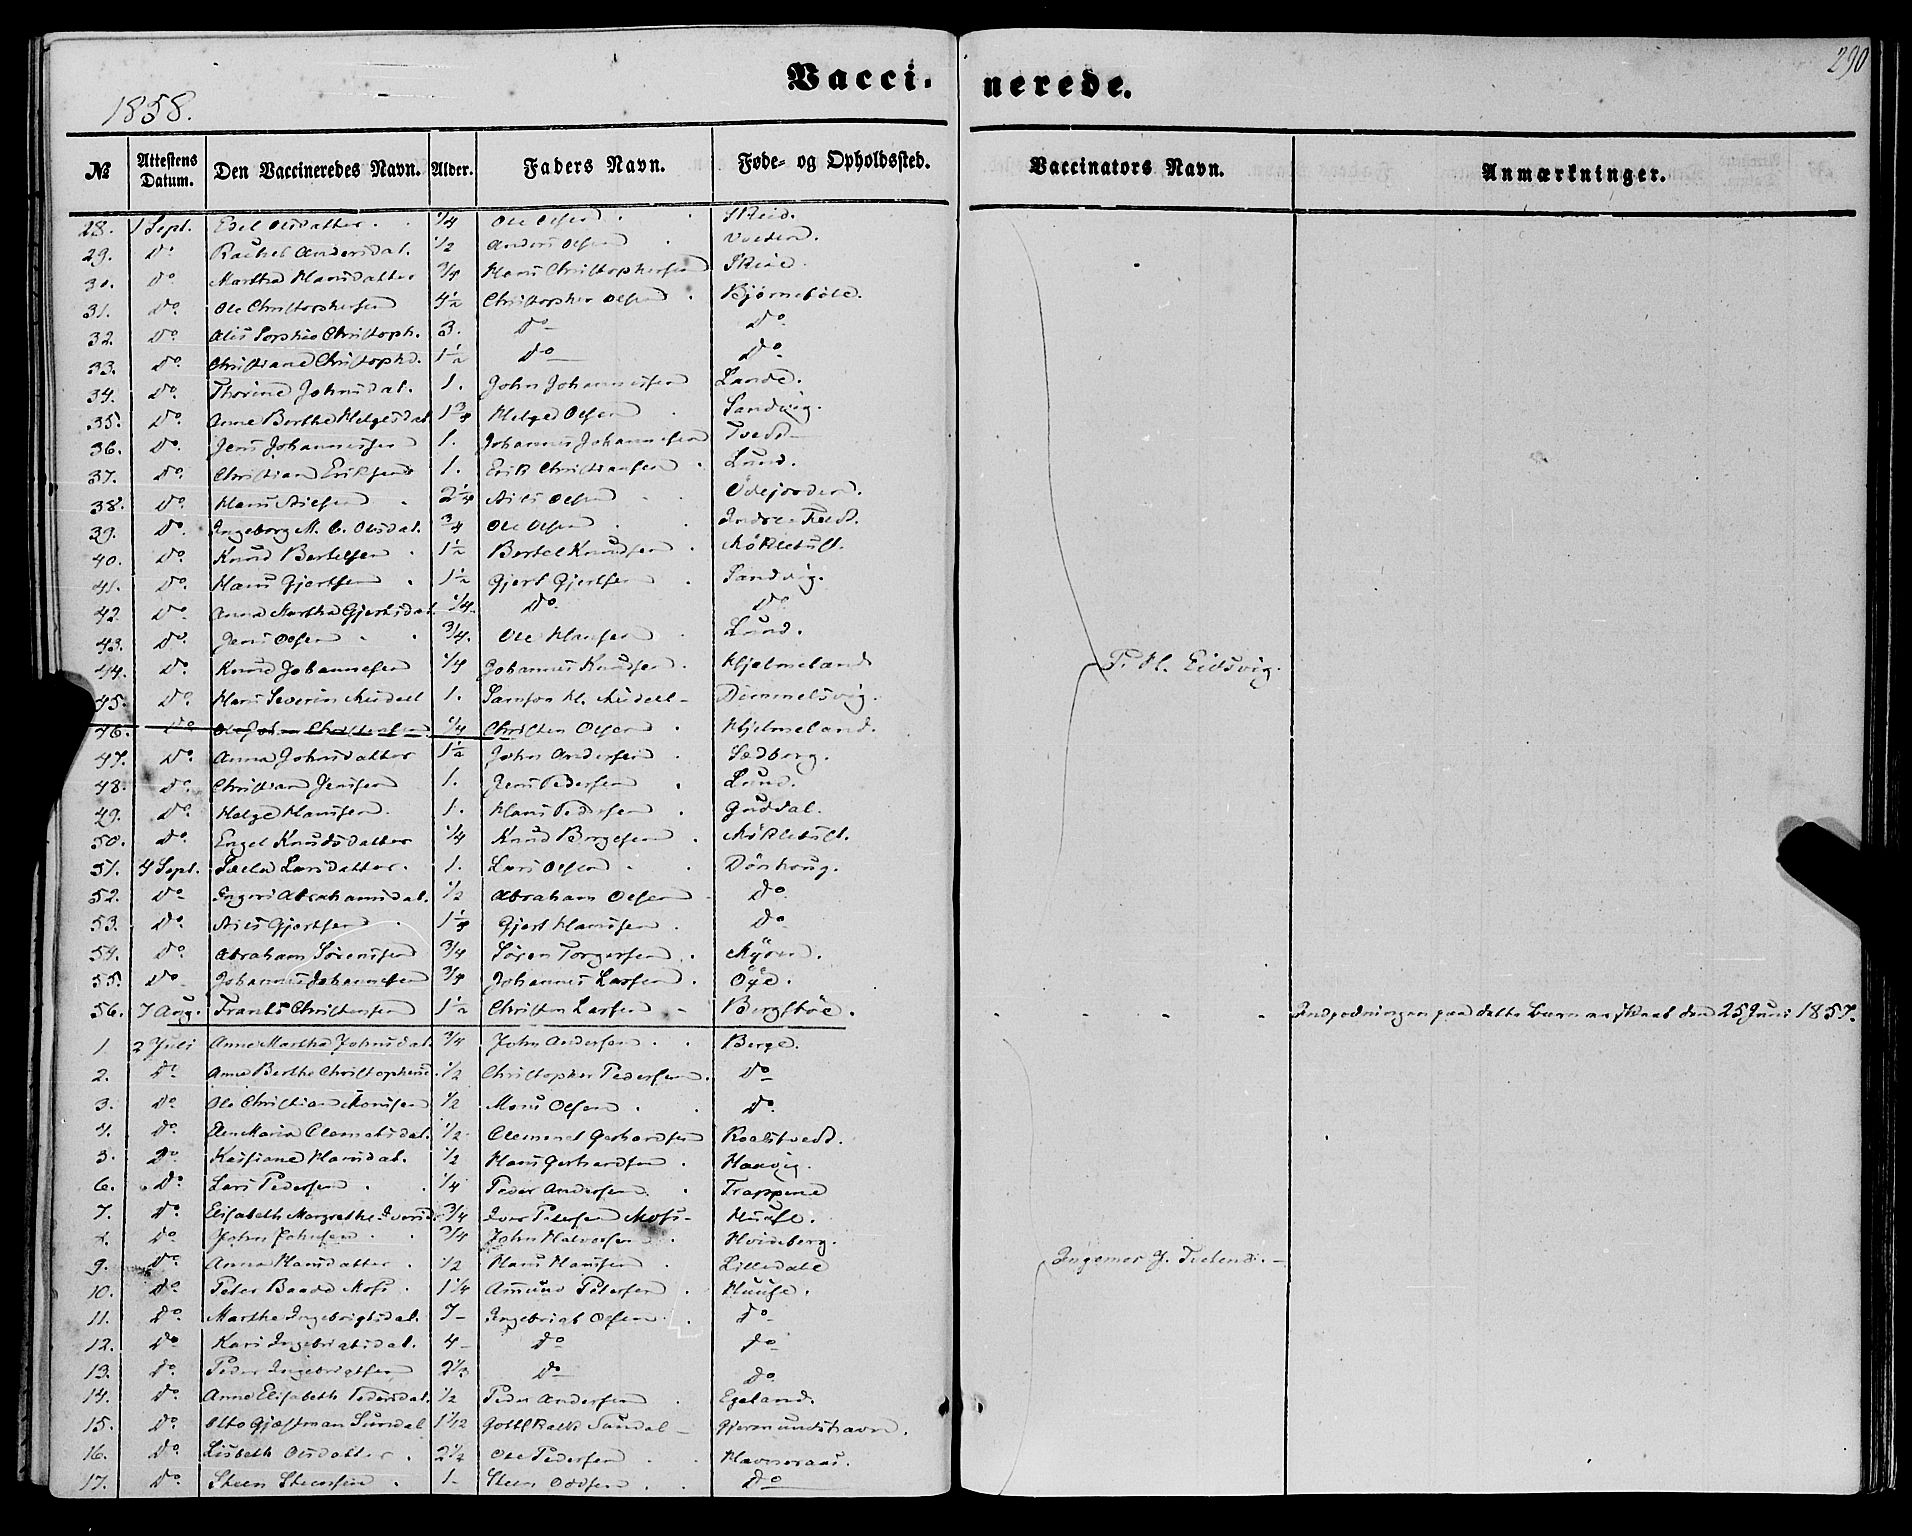 Vaccinerede.
290
1858.
№ Attestens Datum. Den Vaccineredes Navn. Alder. Faders Navn. Føde- og Opholdssted. Vaccinators Navn. Anmærkninger.
28. 1 Sept. Edel Olsdatter. 1/4 Ole Olsen. Skeid.
29. Do. Rachel Andersdat. 1/2 Anders Olsen
30. Do Martha Hansdatter 3/4 Hans Christophersen
31. Do. Ole Christophersen 4 1/2 Christopher Olsen. Bjørnebøle.
32. Do. Sophie Christoph. 3. Do Do.
33. Do. Christiane Christophd. 1 1/2 Do Do.
34. Do. Thorine Johnsdat. 1. John Johannessen Lande.
35. Do. Anne Berthe Helgesdat. 1 3/4 Helge Olsen Sandvig.
36. Do. Jens Johannessen 1. Johannes Johannessen Tvedt
37. Do. Christian Eriksen 1. Erik Christiansen. Lund.
38. Do. Hans Nielsen. 2 1/4 Niels Olsen
39. Do. Ingeborg M. C. Olsdat. 3/4 Ole Olsen.
40. Do. Knud Bertelsen. 1 1/2 Bertel Knudsen. Mökletuft.
41. Do. Hans Gjertsen. 1 1/2 Gjert Gjertsen. Sandvig.
42. Do Anna Martha Gjertsdat. 1/4. Do. Do.
43. Do. Jens Olsen 3/4. Ole Hansen. Lund.
44. Do. Knud Johannesen 1/4 Johannes Knudsen. Hjelmeland
45. Do. Hans Severin 1. Samson H. Dimmelsvig.
46. Do Ole John Christensen 1/4 Christen Olsen Hjelmeland.
47. Do. Anna Johnsdatter 1 1/2 John Andersen. Sædberg.
48. Do. Christian Jensen 1. Jens Pedersen. Lund.
49. Do. Helge Hansen. 1. Hans Pedersen. Guddal.
50. Do. Engel Knudsdatter 1/4 Knud Børgesen. Mökletuft.
51. 4 Sept. Larsdatter. 1. Lars Olsen
52. Do Ingeri Abrahamsdat. 1/2 Abraham Olsen Do.
53. Do. Niels Gjertsen. 1 1/4 Gjert Hansen. Do
54. Do. Abraham Sørensen 3/4 Søren Torgersen. Myren.
55. Do Johannes Johannesen 3/4 Johannes Larsen. Öye.
56. 7 Aug. Frants Christensen 1 1/2 Christen Larsen Bergstöe. Indpodningen paa dette Barn er skeet den 25 Juni 1857.
T. H. Eidsvig.
1. 2 Juli Anne Martha Johnsdat. 3/4 John Andersen. Berge.
2. Do Anne Berthe Christophersd. 1/2 Christopher Pedersen. Do
3. Do. Ole Christian Monsen 1/2 Mons Olsen. Do.
4. Do. Elen Maria Clemetsdat. 1/2 Clement Gerhardsen
5. Do. Hansdat. 1/2 Hans Gerhardsen. Haavig.
6. Do. Lars Pedersen. 1/4 Peder Andersen. Trappene
7. Do. Elisabeth Margrethe Iversd. 3/4 Iver Petersen Huuse.
8. Do John Johnsen. 3/4 John Halvorsen. Hvideberg.
9. Do. Anna Hansdatter. 1/2 Hans Hansen. Lilledale
10. Do. Peter Baade Moss. 1 1/4 Amund Petersen. Huuse.
11. Do. Marthe Ingebrigtsdat. 7 Ingebrigt Olsen. Do
12. Do Kari Ingebrigtsdat. 4 Do Do
13. Do. Peder Ingebrigtsen 2 1/2 Do Do.
14. Do. Anne Elisabeth Pedersdat. 1/2 Peder Andersen. Egeland.
15. Do. Otto Gjæstman 1 1/12 Gjermundshavn.
16. Do. Lisbeth Olsdatter. 2 1/2 Ole Pedersen
17. Do Steen Steensen. 1 Steen Oddsen. Do
Ingemor J.